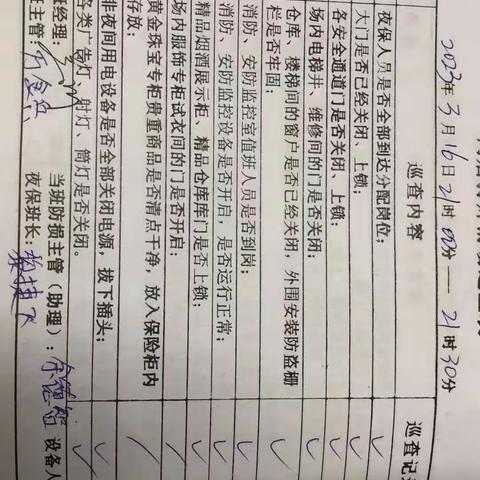 2023年3月16日21时00分——21时30分
巡查内容
巡查记
夜保人员是否全部到达分配岗位;
大门是否已经关闭、上锁;
各安全通道门是否关闭、上锁;
场内电梯井、维修间的门是否关闭;
仓库、楼梯间的窗户是否已经关闭,外围安装防盗栅
栏是否牢固;
消防、安防监控室值班人员是否到岗;
消防、安防监控设备是否开启,是否运行正常;
精品烟酒展示柜、精品仓库库门是否上锁;
场内服饰专柜试衣间的门是否开启;
黄金珠宝专柜贵重商品是否清点干净,放入保险柜内
存放;
非夜间用电设备是否全部关闭电源,拔下插头;
各类广告灯、射灯、筒灯是否关闭。
班经理:
当班防损主管(助理):
设备人
班主管:
夜保班长: